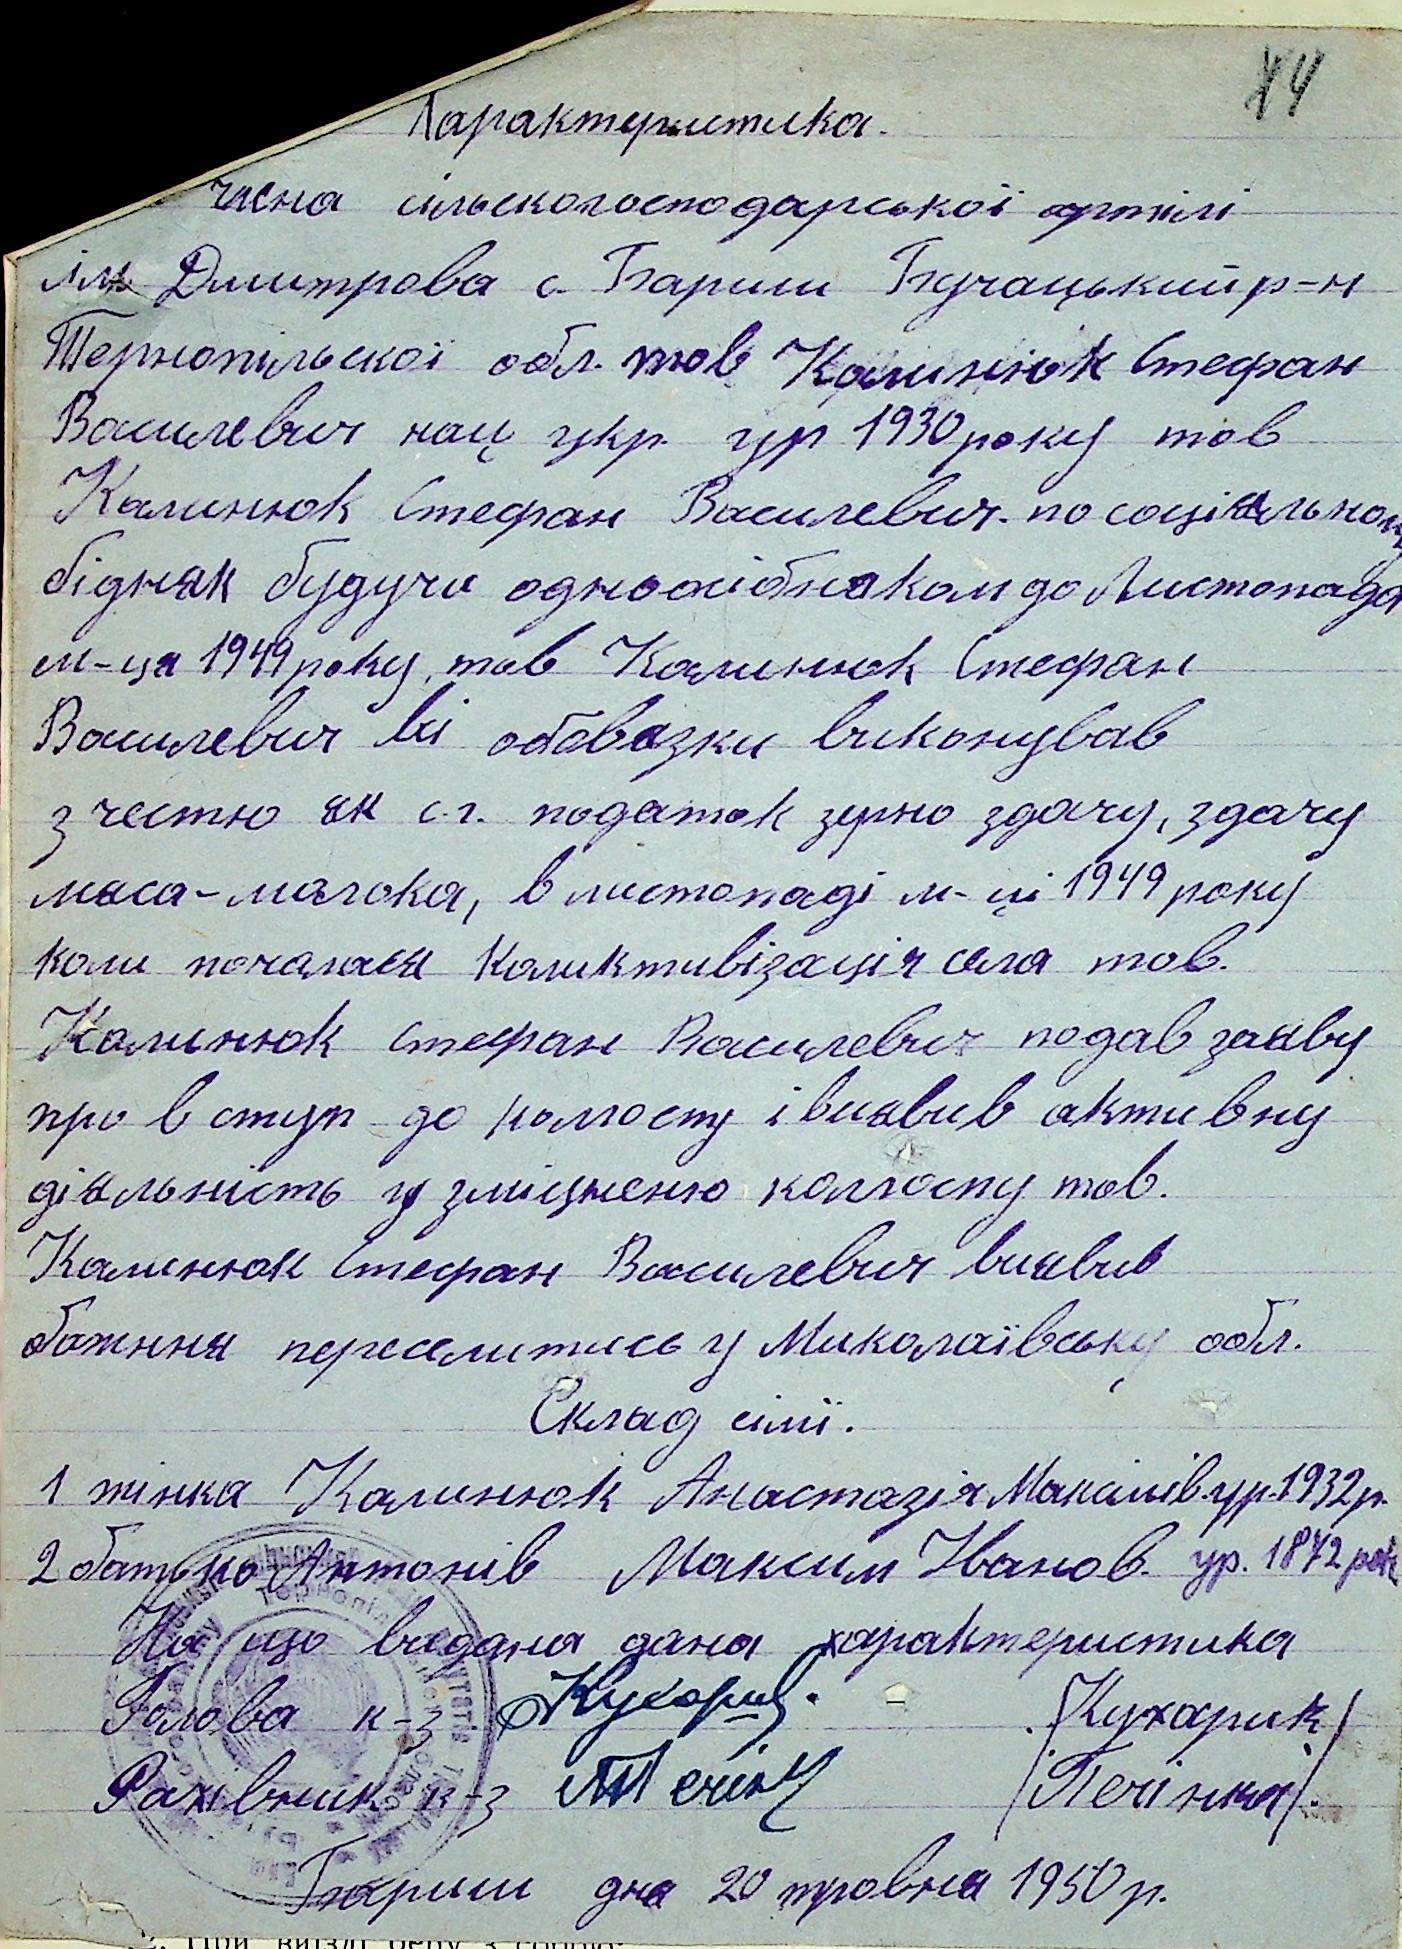 44
Характеристика.
члена сільскогосподарської артілі
ім Димитрова с. Бариш Бучацький р-н
Тернопільскої обл. тов Калинюк Стефан
Василевич нац укр. ур 1930 року тов
Калинюк Стефан Василевич. по соціяльному
бідняк будучи одноосібником до Листопада
м-ця 1949 року, тов Калинюк Стефан
Василевич всі обовязки виконував
з честю як с.г. податок зерно здачу, здачу
мяса-молока, в листопаді м-ці 1949 року
коли почалася коликтивізація села тов.
Калинюк Стефан Василевич подав заяву
про вступ до колгоспу і виявив активну
діяльність у зміцненю колгоспу тов.
Калинюк Стефан Василевич виявив
бажння переселитись у Миколаївську обл.
Склад сімї.
1 жінка Калинюк Анастазія Максимів. ур. 1932 р.
2 батько Антонів Максим Іванов. ур. 1872 рок
На що видана дана характеристика
Голова к-з Кухарик. /Кухарик/
Рахівник к-з Печінка /Печінка/.
Бариш дня 20 травня 1950 р.
2. При виїзді беру з собою: